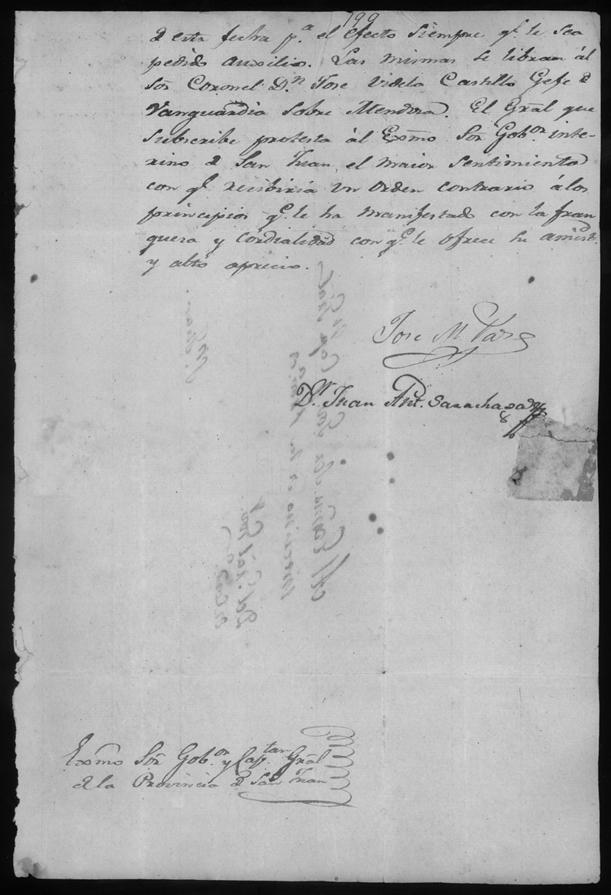 199
d esta fecha p.a el efecto siempre q.e le sea
pedido auxilio. Las mismas se libran ál
Sōr Coronel D.n José Videla Castillo Gefe d
Vanguardia sobre Mendoza. El Grāl que
subscribe protesta ál Exmo Sōr Gob.or inte-
rino d San Juan, el maior sentimiento
con q.e recibiria un orden contrario á los
principios q.e le ha manifestado con la fran
queza y cordialidad con q.e le ofrece su amist.d
y alto aprecio.
Jose M. Paz
D.r Juan Ant. Sarachaga
Exmo Sōr Gob.or y Cap.tan Grāl
de la Provincia d San Juan